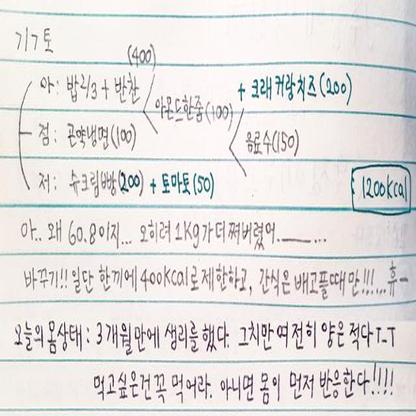 기7토
(400)
아: 밥 2/3 + 반찬
아몬드한줌(100)
+ 크래커랑치즈(200)
점: 곤약냉면(100)
음료수(150)
저: 슈크림빵(200) + 토마토(50)
1200kcal
아.. 왜 60.8이지... 오히려 1kg가 더 쪄버렸어.____...
바꾸기!! 일단 한끼에 400kcal로 제한하고, 간식은 배고플때만!!!...휴-
오늘의 몸상태 : 3개월만에 생리를 했다. 그치만 여전히 양은 적다 T_T
먹고싶은건 꼭 먹어라. 아니면 몸이 먼저 반응한다!!!!